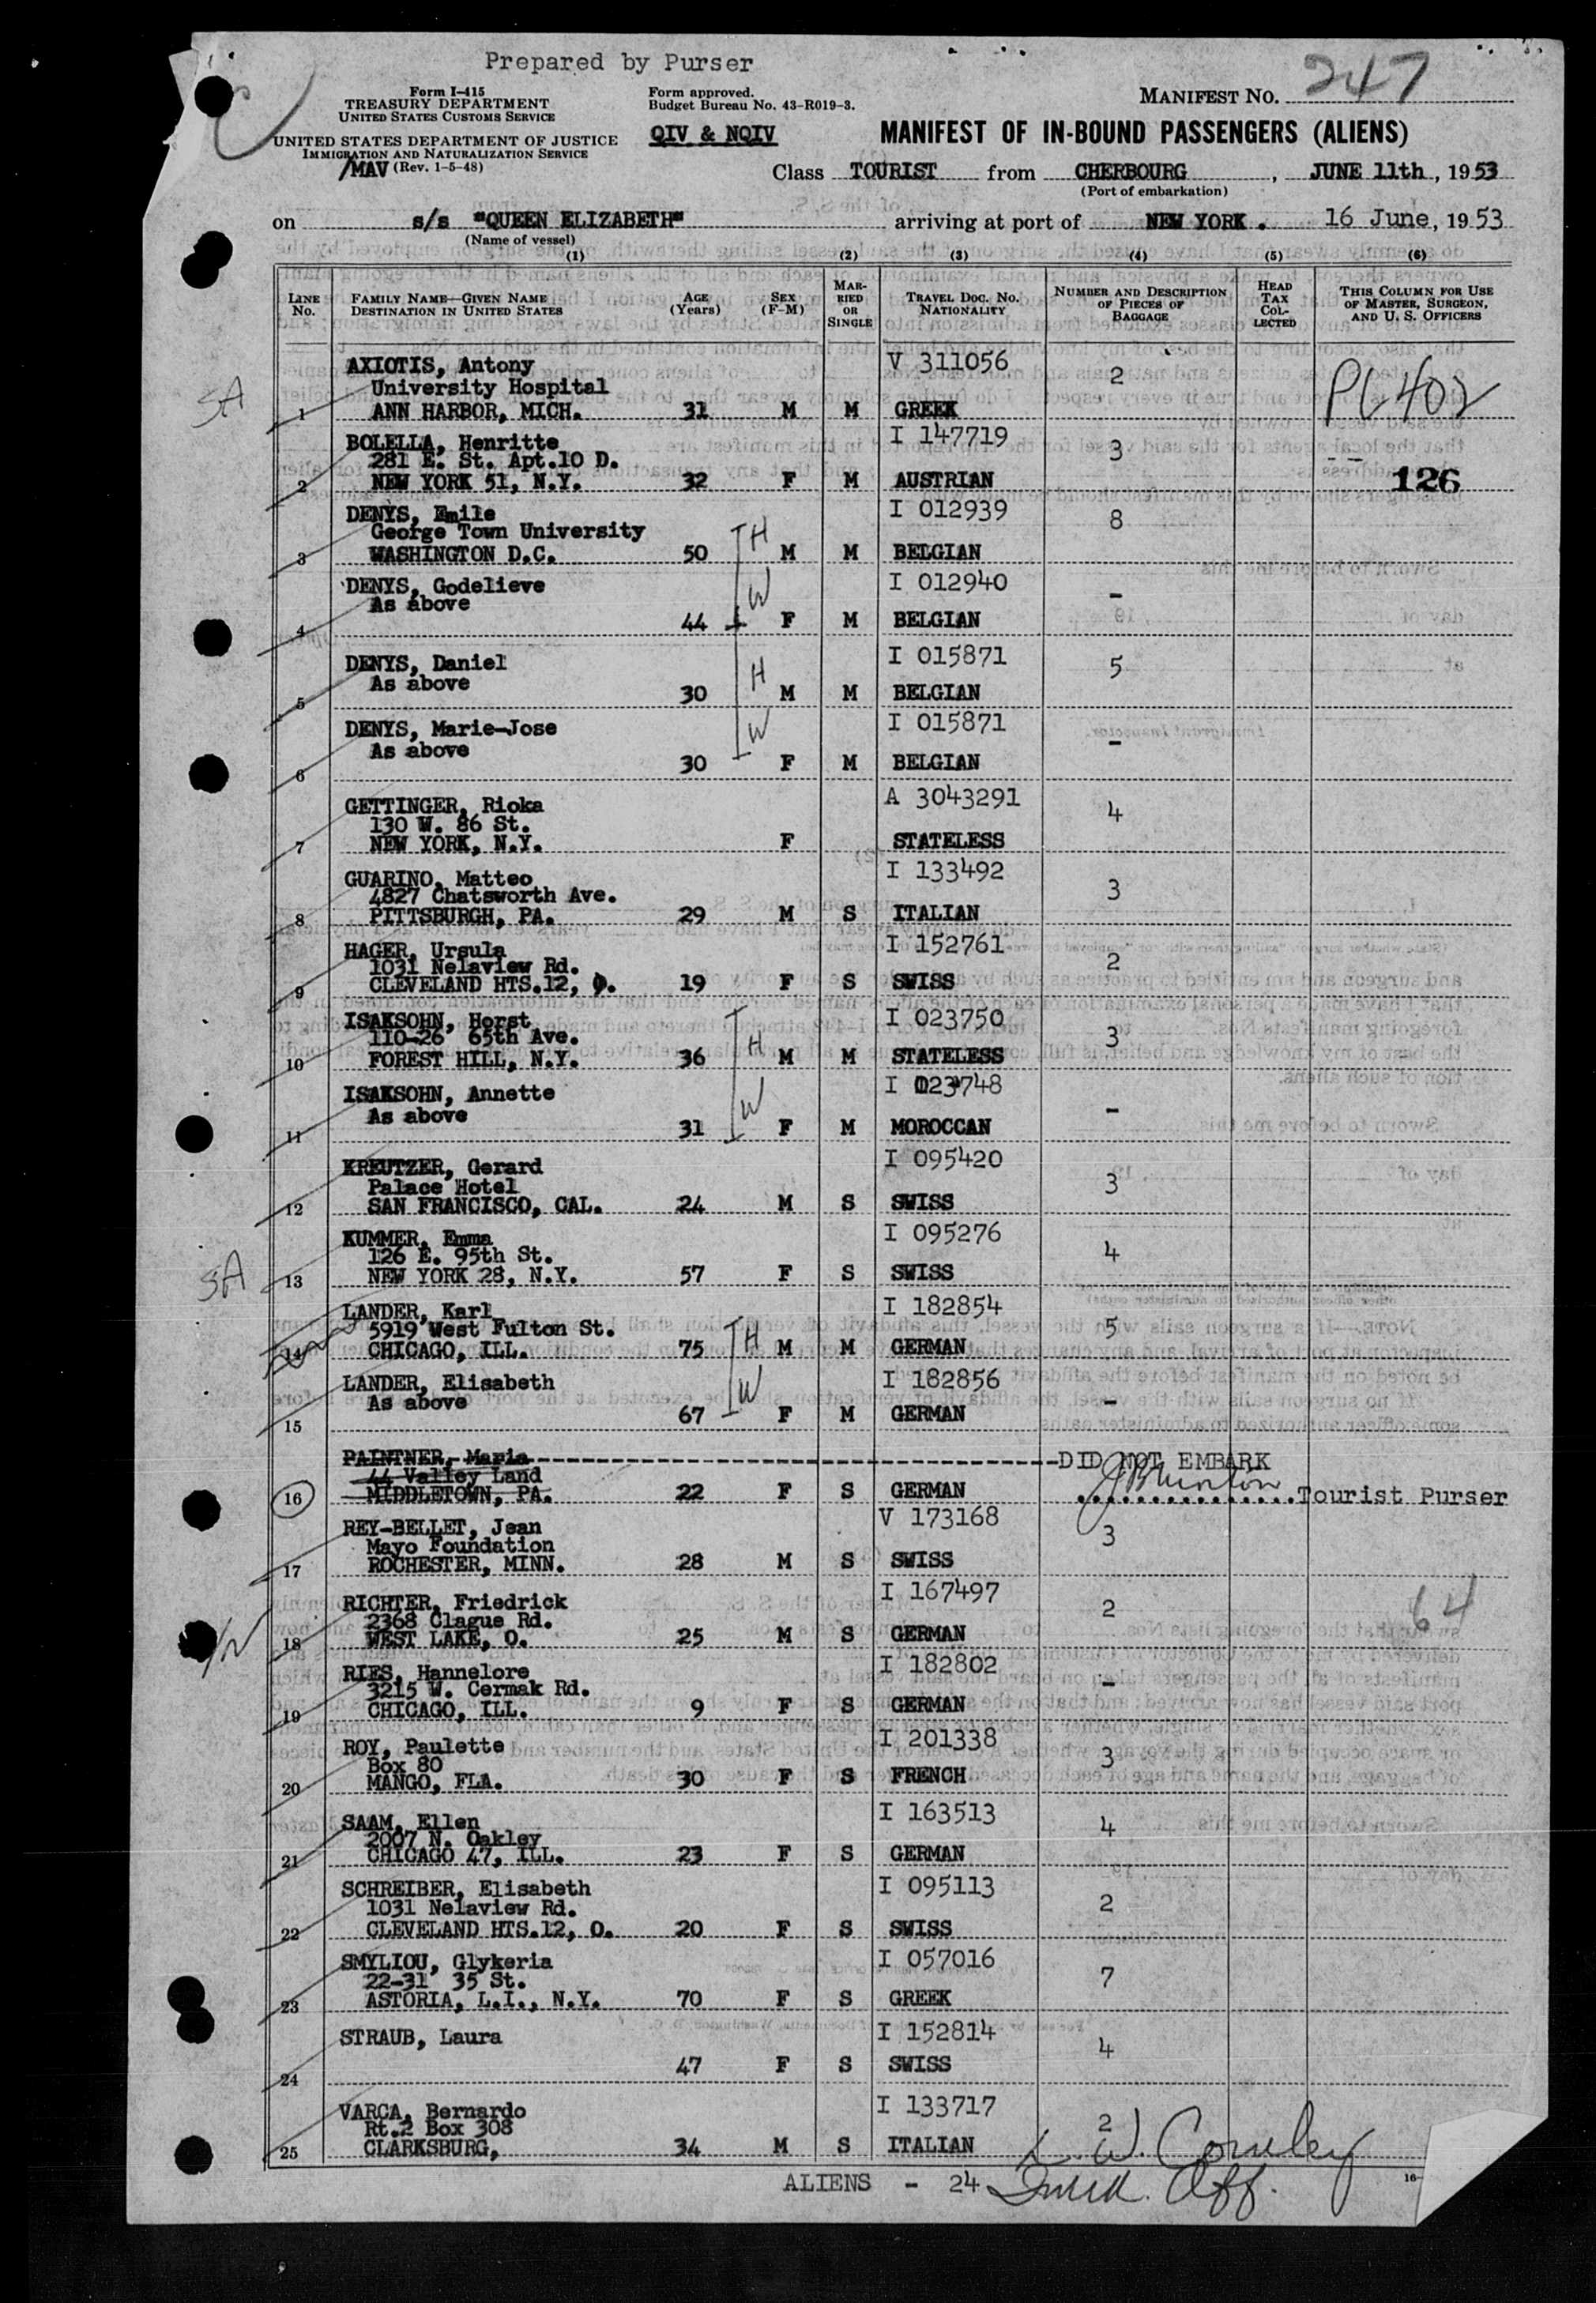 Prepared by Purser
Form I-415
TREASURY DEPARTMENT
UNITED STATES CUSTOMS SERVICE
UNITED STATES DEPARTMENT OF JUSTICE
IMMIGRATION AND NATURALIZATION SERVICE
/MAV (Rev. 1-5-48)
Form approved.
Budget Bureau No. 43-R019-3.
QIV & NQIV
MANIFEST NO. 247
MANIFEST OF IN-BOUND PASSENGERS (ALIENS)
Class TOURIST from CHERBOURG, JUNE 11th, 1953
(Port of embarkation)
on s/s "QUEEN ELIZABETH" arriving at port of NEW YORK. 16 June, 1953
(Name of vessel)
(1) (2) (3) (4) (5) (6)
LINE No. FAMILY NAME—GIVEN NAME DESTINATION IN UNITED STATES AGE (Years) SEX (F-M) MARRIED OR SINGLE TRAVEL DOC. NO. NATIONALITY NUMBER AND DESCRIPTION OF PIECES OF BAGGAGE HEAD TAX COLLECTED THIS COLUMN FOR USE OF MASTER, SURGEON, AND U. S. OFFICERS
AXIOTIS, Antony V 311056 2
SA University Hospital
1 ANN HARBOR, MICH. 31 M M GREEK
BOLELLA, Henritte I 147719 3
281 E. St. Apt.10 D.
2 NEW YORK 51, N.Y. 32 F M AUSTRIAN 126
DENYS, Emile I 012939 8
George Town University
3 WASHINGTON D.C. 50 H M M BELGIAN
DENYS, Godelieve I 012940 -
As above
4 44 W F M BELGIAN
DENYS, Daniel I 015871 5
As above
5 30 H M M BELGIAN
DENYS, Marie-Jose I 015871 -
As above
6 30 W F M BELGIAN
GETTINGER, Rioka A 3043291 4
130 W. 86 St.
7 NEW YORK, N.Y. F STATELESS
GUARINO, Matteo I 133492 3
4827 Chatsworth Ave.
8 PITTSBURGH, PA. 29 M S ITALIAN
HAGER, Ursula I 152761 2
1031 Nelaview Rd.
9 CLEVELAND HTS.12, O. 19 F S SWISS
ISAKSOHN, Horst I 023750 3
110-26 65th Ave.
10 FOREST HILL, N.Y. 36 H M M STATELESS
ISAKSOHN, Annette I 023748 -
As above
11 31 W F M MOROCCAN
KREUTZER, Gerard I 095420 3
Palace Hotel
12 SAN FRANCISCO, CAL. 24 M S SWISS
KUMMER, Emma I 095276 4
126 E. 95th St.
SA 13 NEW YORK 28, N.Y. 57 F S SWISS
LANDER, Karl I 182854 5
5919 West Fulton St.
14 CHICAGO, ILL. 75 H M M GERMAN
LANDER, Elisabeth I 182856 -
As above
15 67 W F M GERMAN
PAINTNER, Maria DID NOT EMBARK
44 Valley Land
16 MIDDLETOWN, PA. 22 F S GERMAN Tourist Purser
REY-BELLET, Jean V 173168 3
Mayo Foundation
17 ROCHESTER, MINN. 28 M S SWISS
RICHTER, Friedrick I 167497 2 64
2368 Clague Rd.
18 WEST LAKE, O. 25 M S GERMAN
RIES, Hannelore I 182802 -
3215 W. Cermak Rd.
19 CHICAGO, ILL. 9 F S GERMAN
ROY, Paulette I 201338 3
Box 80
20 MANGO, FLA. 30 F S FRENCH
SAAM, Ellen I 163513 4
2007 N. Oakley
21 CHICAGO 47, ILL. 23 F S GERMAN
SCHREIBER, Elisabeth I 095113 2
1031 Nelaview Rd.
22 CLEVELAND HTS.12, O. 20 F S SWISS
SMYLIOU, Glykeria I 057016 7
22-31 35 St.
23 ASTORIA, L.I., N.Y. 70 F S GREEK
STRAUB, Laura I 152814 4
24 47 F S SWISS
VARCA, Bernardo I 133717 2
Rt.2 Box 308
25 CLARKSBURG, 34 M S ITALIAN
ALIENS - 24
16-